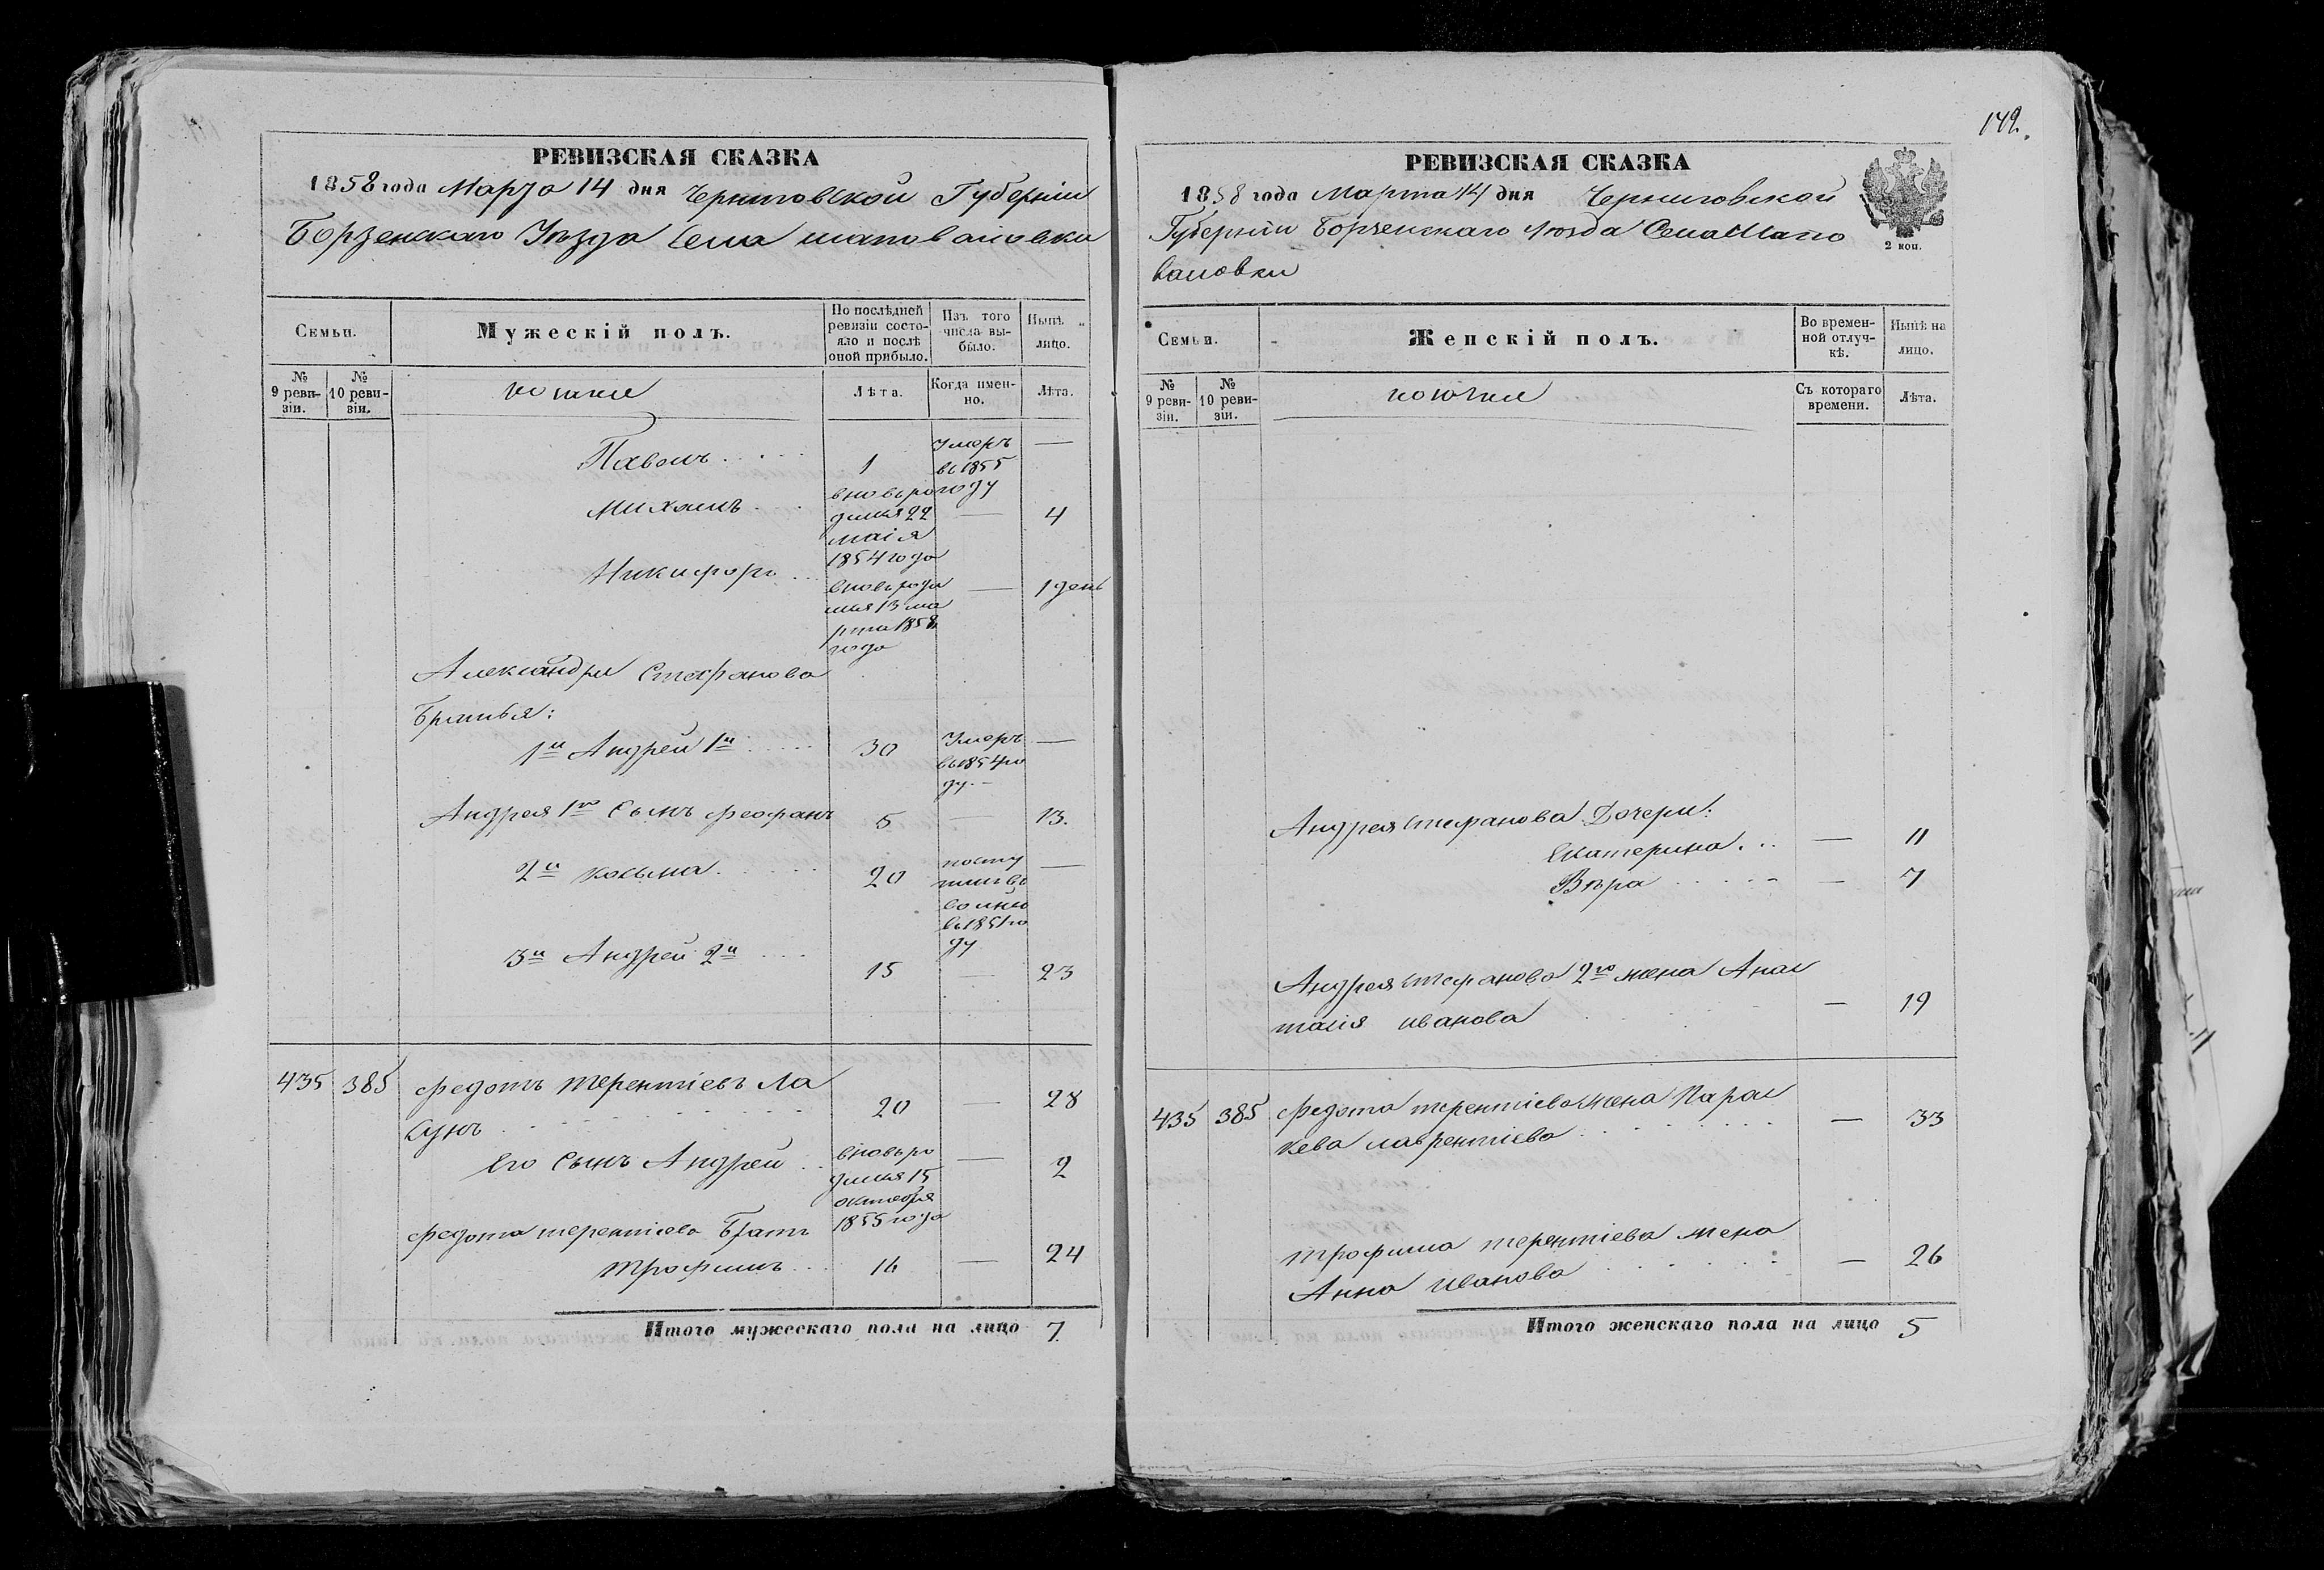 РЕВИЗСКАЯ СКАЗКА
1858 года Марта 14 дня Черниговской Губерніи
Борзенскаго Уѣзда Села Шаповаловки
Семьи.
Мужескій полъ.
По послѣдней ревизіи состояло и послѣ оной прибыло.
Изъ того числа выбыло.
Нынѣ лицо.
№ 9 ревизіи.
№ 10 ревизіи.
Лѣта.
Когда именно.
Лѣта.
Павелъ 1 Умеръ въ 1855 году —
Михаилъ вновь родился 22 маія 1854 года — 4
Никифоръ вновь родился 13 марта 1858 года — 1 день
Александра Стефанова
Братья:
1й Андрей 1й 30 Умеръ въ 1854 году —
Андрея 1го Сынъ Феофанъ 5 — 13.
2й Косьма 20 въ 1851 году —
3й Андрей 2й 15 — 23
435 385 Федотъ Терентіевъ Ла
сунъ 20 — 28
Его Сынъ Андрей вновь родился 15 октября 1855 года — 2
Федота Терентіева Братъ
Трофимъ 16 — 24
Итого мужескаго пола на лицо 7
149.
РЕВИЗСКАЯ СКАЗКА
1858 года Марта 14 дня Черниговской
Губерніи Борзенскаго Уѣзда Села Шапо
валовки
2 коп.
Семьи.
Женскій полъ.
Во временной отлучкѣ.
Нынѣ на лицо.
№ 9 ревизіи.
№ 10 ревизіи.
Съ котораго времени.
Лѣта.
Андрея Стефанова Дочери:
Екатерина — 11
Вѣра — 7
Андрея Стефанова 2го жена Анас
тасія Иванова — 19
435 385 Федота Терентіева жена Парас
кева Лаврентіева — 33
Трофима Терентіева жена
Анна Иванова — 26
Итого женскаго пола на лицо 5